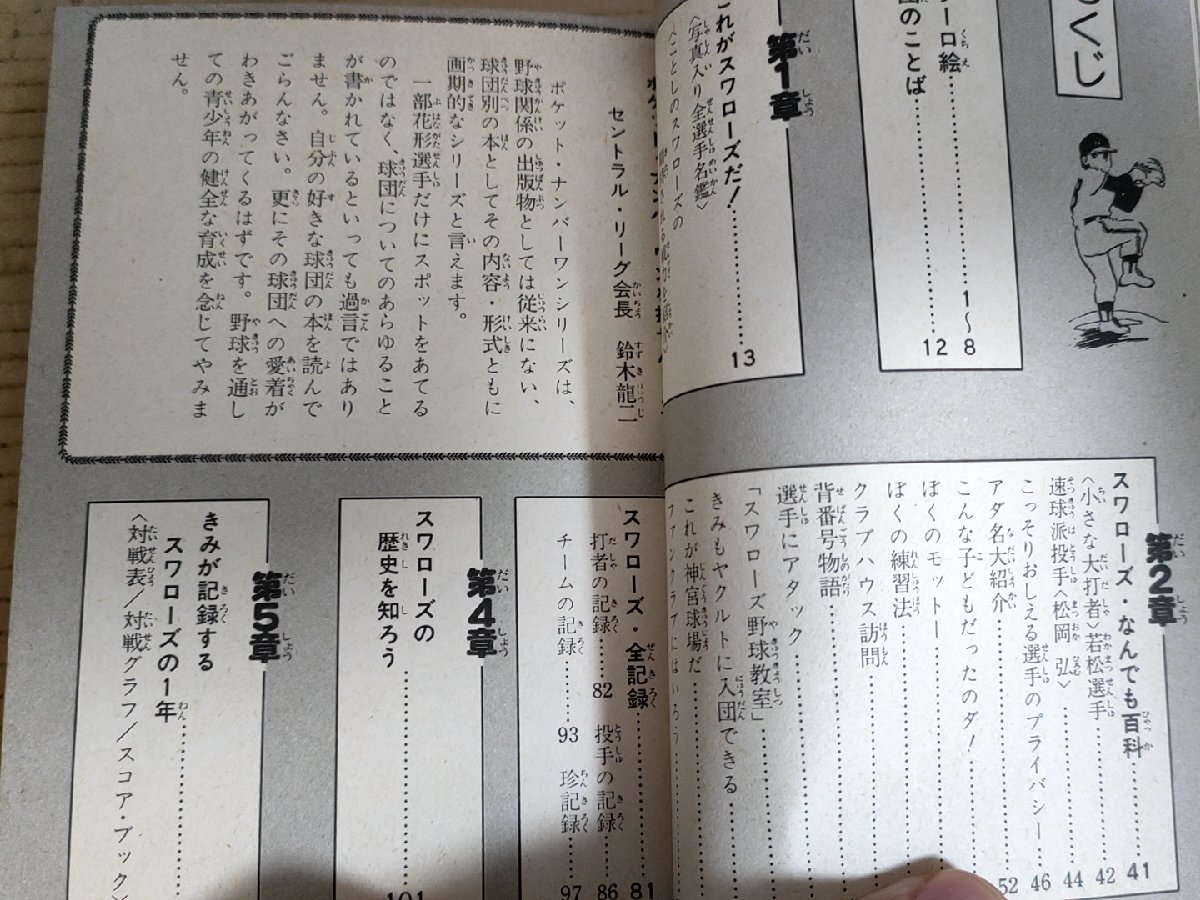 もくじ
カラー口絵……1〜8
団のことば……12
第1章
これがスワローズだ！……13
〈写真入り全選手名鑑〉
〈ことしのスワローズの
第2章
スワローズ・なんでも百科……41
〈小さな大打者〉若松選手……42
速球派投手〈松岡 弘〉……44
こっそりおしえる選手のプライバシー……46
アダ名大紹介……52
こんな子どもだったのダ！
ぼくのモットー
ぼくの練習法
クラブハウス訪問
背番号物語
選手にアタック
「スワローズ野球教室」
きみもヤクルトに入団できる
これが神宮球場だ
ファンクラブにはいろう
セントラル・リーグ会長 鈴木龍二
ポケット・ナンバーワンシリーズは、
野球関係の出版物としては従来にない、
球団別の本としてその内容・形式ともに
画期的なシリーズと言えます。
一部花形選手だけにスポットをあてる
のではなく、球団についてのあらゆること
が書かれているといっても過言ではあり
ません。自分の好きな球団の本を読んで
ごらんなさい。更にその球団への愛着が
わきあがってくるはずです。野球を通し
ての青少年の健全な育成を念じてやみま
せん。
スワローズ・全記録……81
打者の記録……82 投手の記録……86
チームの記録……93 珍記録……97
第4章
スワローズの
歴史を知ろう……101
第5章
きみが記録する
スワローズの1年
〈対戦表/対戦グラフ/スコア・ブック〉